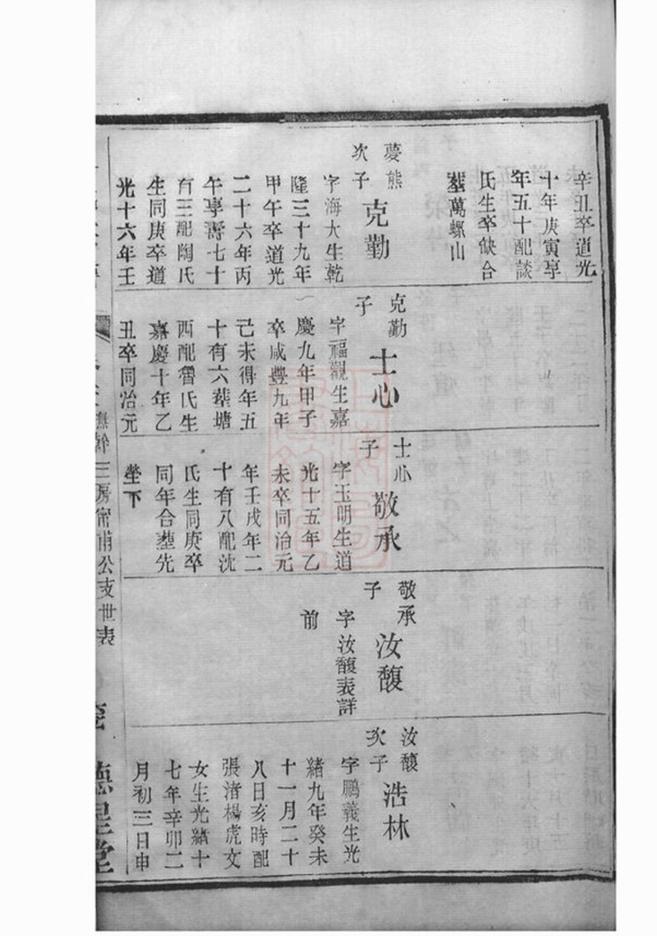 辛丑卒道光
十年庚寅享
年五十配談
氏生卒缺合
塟萬螺山
夢熊
次子
克勤
字海大生乾
隆三十九年
甲午卒道光
二十六年丙
午享壽七十
有三配陶氏
生同庚卒道
光十六年壬
克勤
子
士心
字福觀生嘉
慶九年甲子
卒咸豐九年
己未得年五
十有六塟塘
西配魯氏生
嘉慶十年乙
丑卒同治元
士心
子
敬承
字玉明生道
光十五年乙
未卒同治元
年壬戌年二
十有八配沈
氏生同庚卒
同年合塟先
塋下
敬承
子
汝馥
字汝馥表詳
前
汝馥
次子
浩林
字鵬義生光
緒九年癸未
十一月二十
八日亥時配
張渚楊虎文
女生光緒十
七年辛卯二
月初三日申
三房甯甫公支世表
德星堂